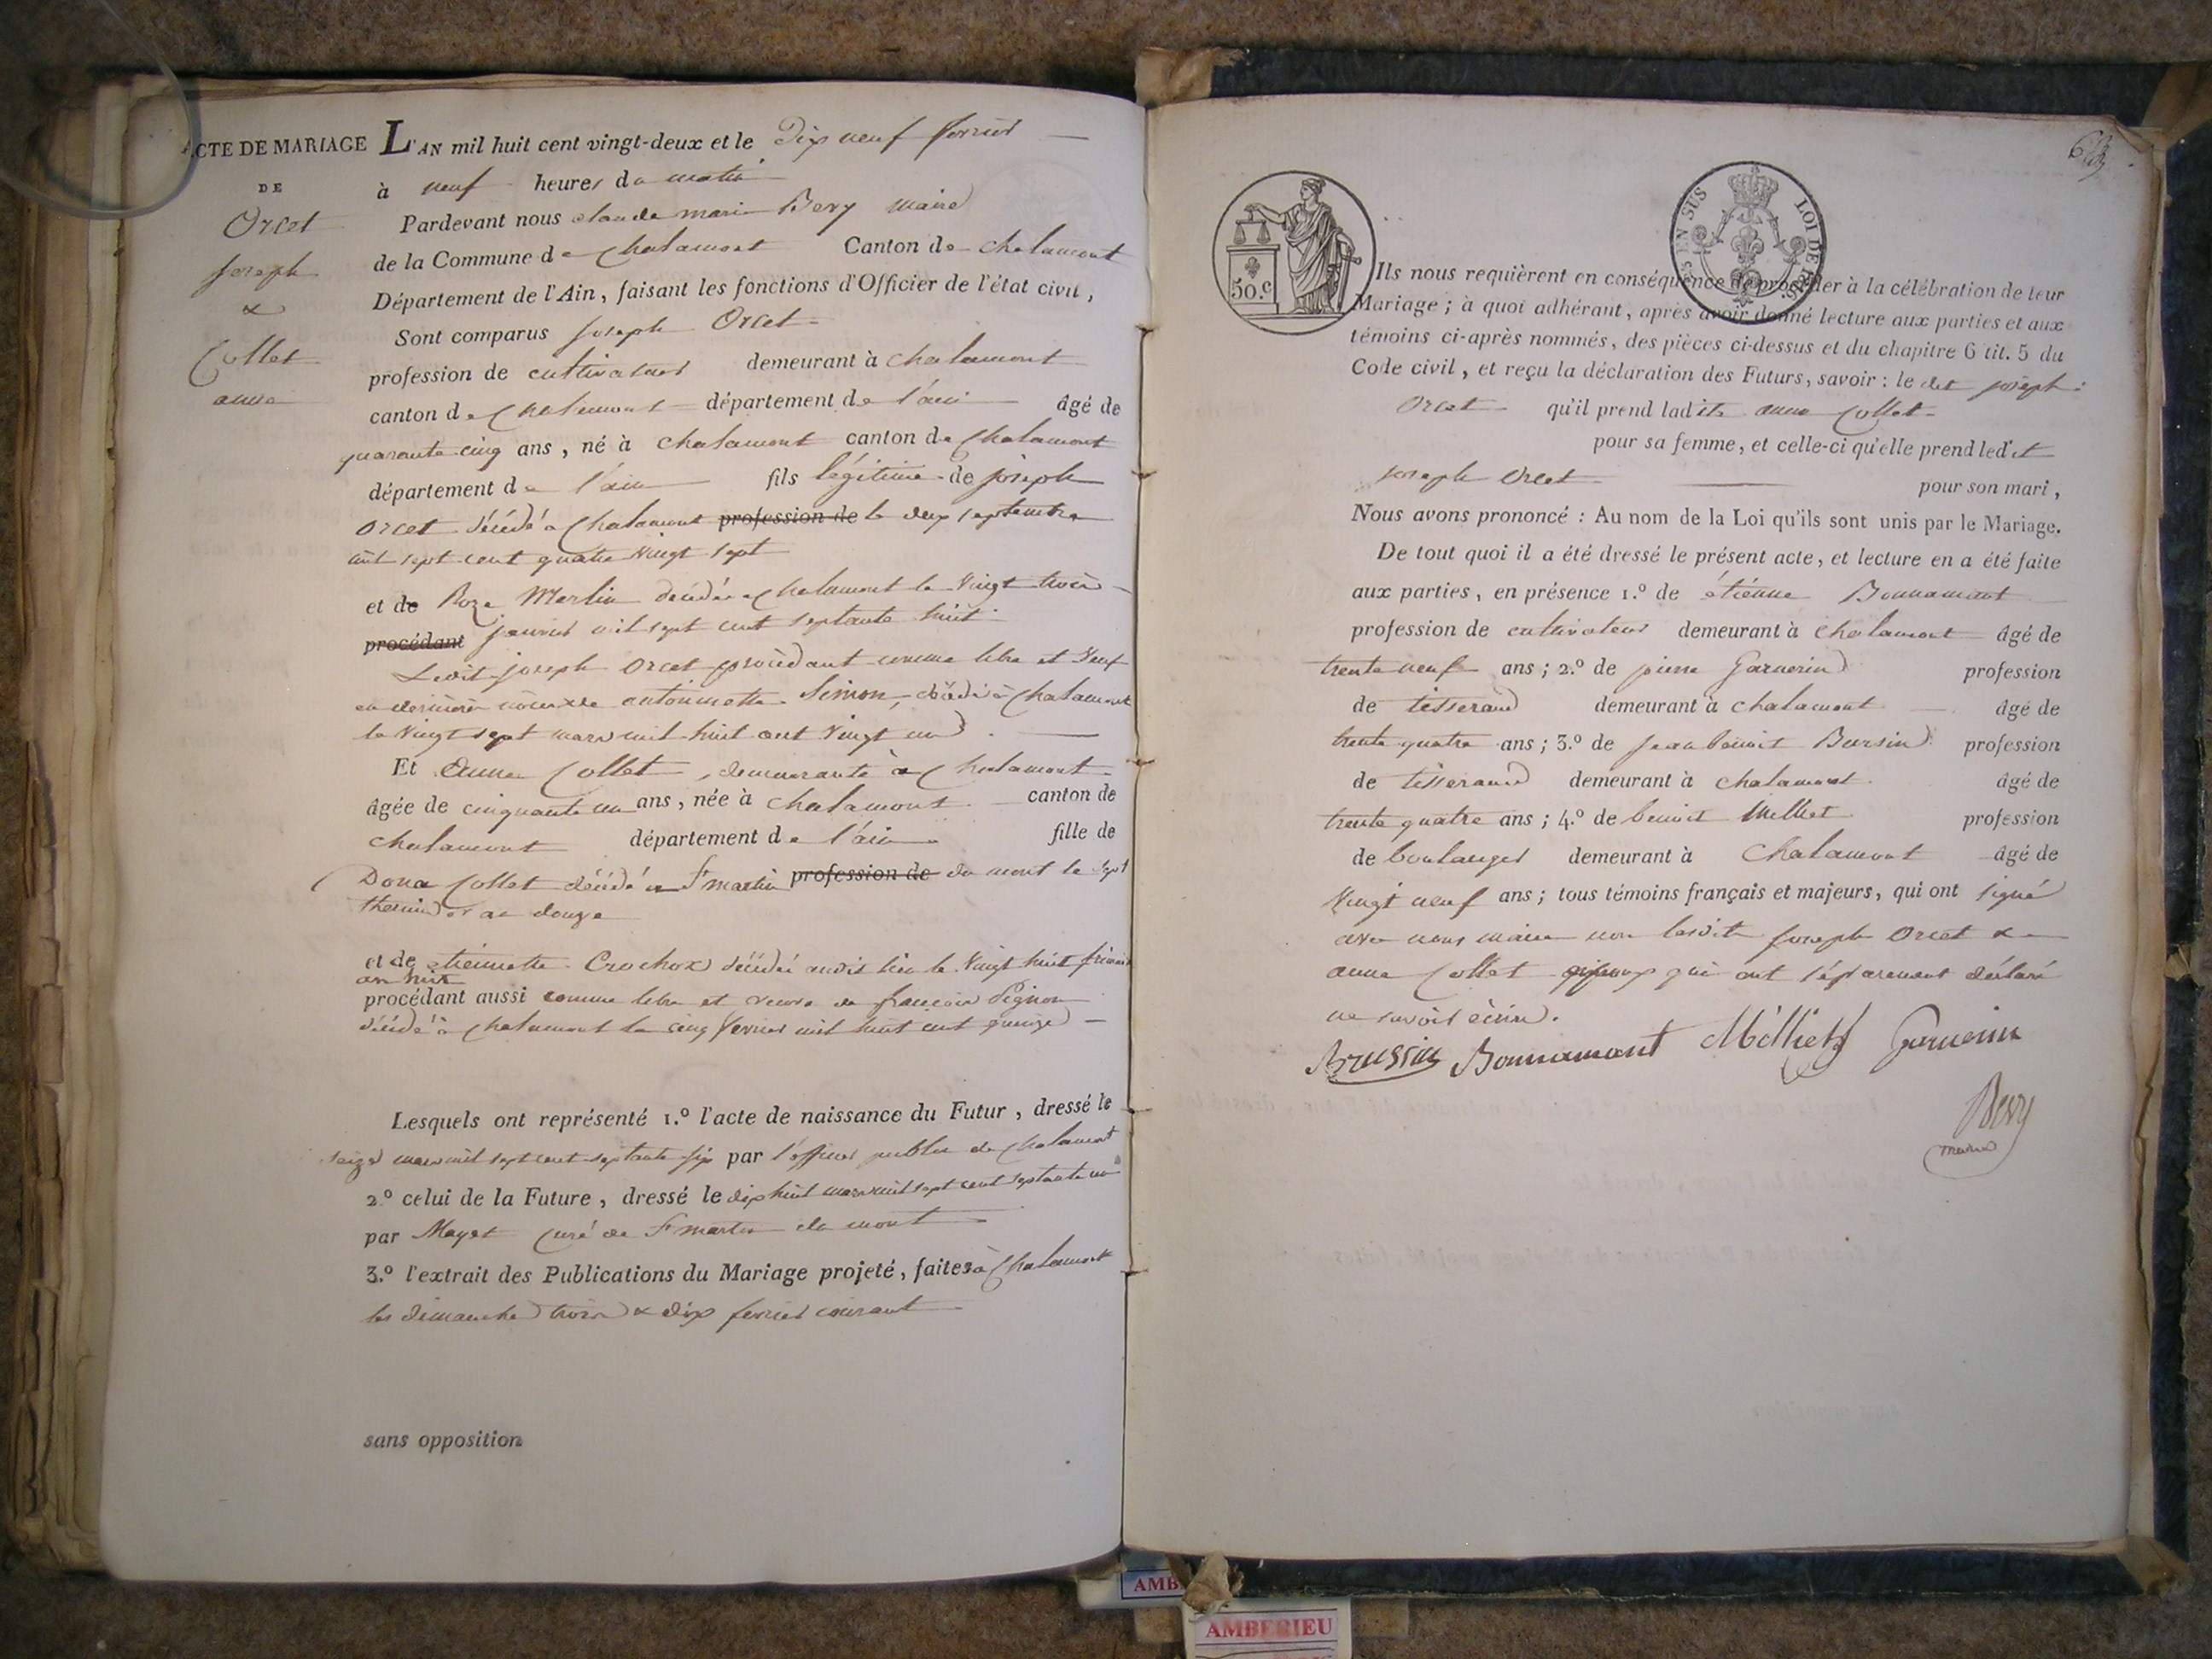 ACTE DE MARIAGE
DE
Orcet
Joseph
&
Collet
anne
L'AN mil huit cent vingt-deux et le Dix neuf fevrier
à neuf heures du matin
Pardevant nous claude marie Bevy maire
de la Commune de Chalamont Canton de chalamont
Département de l'Ain, faisant les fonctions d'Officier de l'état civil,
Sont comparus Joseph Orcet
profession de cultivateur demeurant à chalamont
canton de Chalamont département de l'ain âgé de
quarante cinq ans, né à chalamont canton de Chalamont
département de l'ain fils légitime de joseph
orcet décédé a Chalamont profession de le deux septembre
mil sept cent quatre vingt sept
et de Roze Merlin décédée a Chalamont le vingt trois
procédant janvier mil sept cent septante huit
Ledit joseph orcet procédant comme libre et veuf
en dernières noces de antoinette Simon, décédé à Chalamont
le vingt sept mars mil huit cent vingt un
Et anne Collet, demeurante à Chalamont
âgée de cinquante un ans, née à chalamont canton de
chalamont département de l'ain fille de
Dona Collet décédé a St martin profession de du mont le sept
thermidor an douze
et de etiennette Crochox décédée audit lieu le vingt huit frimaire
an huit
procédant aussi comme libre et veuve de françois Pignon
décédé à chalamont le cinq fevrier mil huit cent quinze
Lesquels ont représenté 1.º l'acte de naissance du Futur, dressé le
seize mars mil sept cent septante six par l'officier public de Chalamont
2.º celui de la Future, dressé le dix huit mars mil sept cent septante un
par Mayet curé de St martin du mont
3.º l'extrait des Publications du Mariage projeté, faites à Chalamont
les dimanches trois & dix fevrier courant
sans opposition
50.c
EN SUS
LOI DE
Ils nous requièrent en conséquence de procéder à la célébration de leur
Mariage; à quoi adhérant, après avoir donné lecture aux parties et aux
témoins ci-après nommés, des pièces ci-dessus et du chapitre 6 tit. 5 du
Code civil, et reçu la déclaration des Futurs, savoir: le dit joseph
Orcet qu'il prend ladite anne Collet
pour sa femme, et celle-ci qu'elle prend ledit
joseph Orcet pour son mari,
Nous avons prononcé: Au nom de la Loi qu'ils sont unis par le Mariage.
De tout quoi il a été dressé le présent acte, et lecture en a été faite
aux parties, en présence 1.º de étienne Bonnamant
profession de cultivateur demeurant à chalamont âgé de
trente neuf ans; 2.º de pierre Garnerin profession
de tisserand demeurant à chalamont âgé de
trente quatre ans; 3.º de jean benoit Bursin profession
de tisserand demeurant à chalamont âgé de
trente quatre ans; 4.º de benoit Milliet profession
de boulanger demeurant à Chalamont âgé de
vingt neuf ans; tous témoins français et majeurs, qui ont signé
avec nous maire non lesdits joseph Orcet &
anne Collet époux qui ont séparement déclaré
ne savoir écrire.
Brussin Bonnamant Milliet Garnerin
Bevy
maire
AMB
AMBERIEU